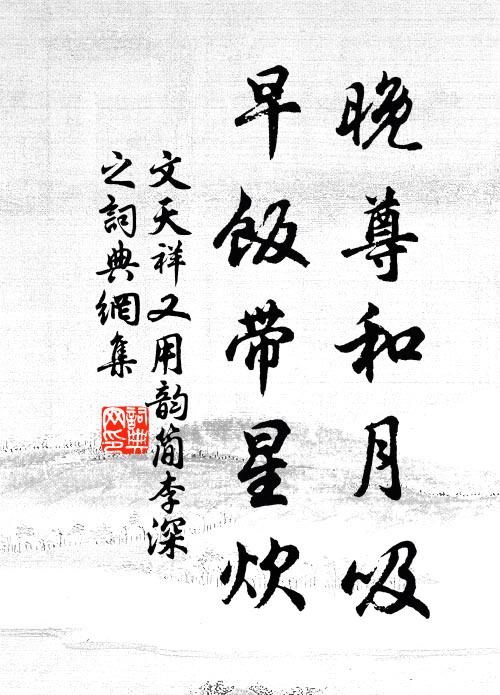 晚尊和月吸
早飯带星炊
文天祥又用韵简李深
之詞典網集
詞典网印